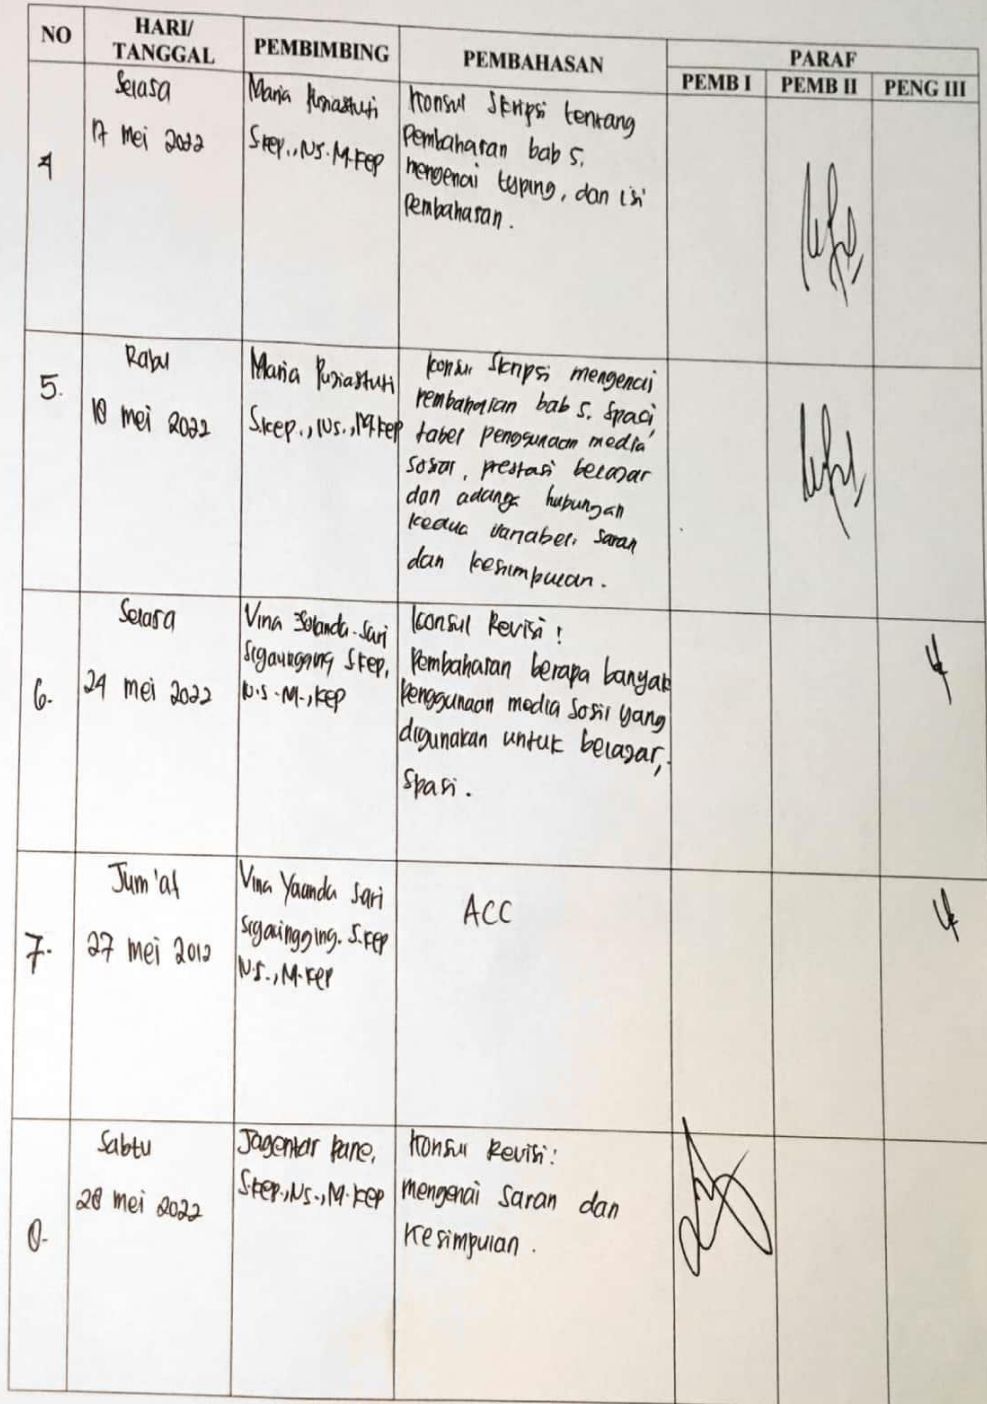 NO HARI/ TANGGAL PEMBIMBING PEMBAHASAN PARAF
PEMB I PEMB II PENG III
4
Selasa
17 mei 2022
Maria Pujiastuti
S.kep., NS. M.kep
Konsul Skripsi tentang
Pembahasan bab 5.
mengenai typing, dan isi
Pembahasan.
5.
Rabu
18 mei 2022
Maria Pujiastuti
S.kep., NS., M.kep
konsul Skripsi mengenai
pembahasan bab 5. Spaci,
tabel penggunaan media
sosial, prestasi belajar
dan adanya hubungan
kedua variabel, saran
dan kesimpulan.
6.
Selasa
24 mei 2022
Vina Sari
S.kep,
N.S. M., kep
Konsul Revisi :
Pembahasan berapa banyak
penggunaan media sosil yang
digunakan untuk belajar,
Spasi.
7.
Jum'at
27 mei 2012
Vina Yaanda Sari
Sigaingging. S.kep
N.S., M.kep
ACC
8.
Sabtu
28 mei 2022
Jagentar Pane,
S.kep., NS., M.kep
Konsul Revisi :
mengenai saran dan
Kesimpulan .